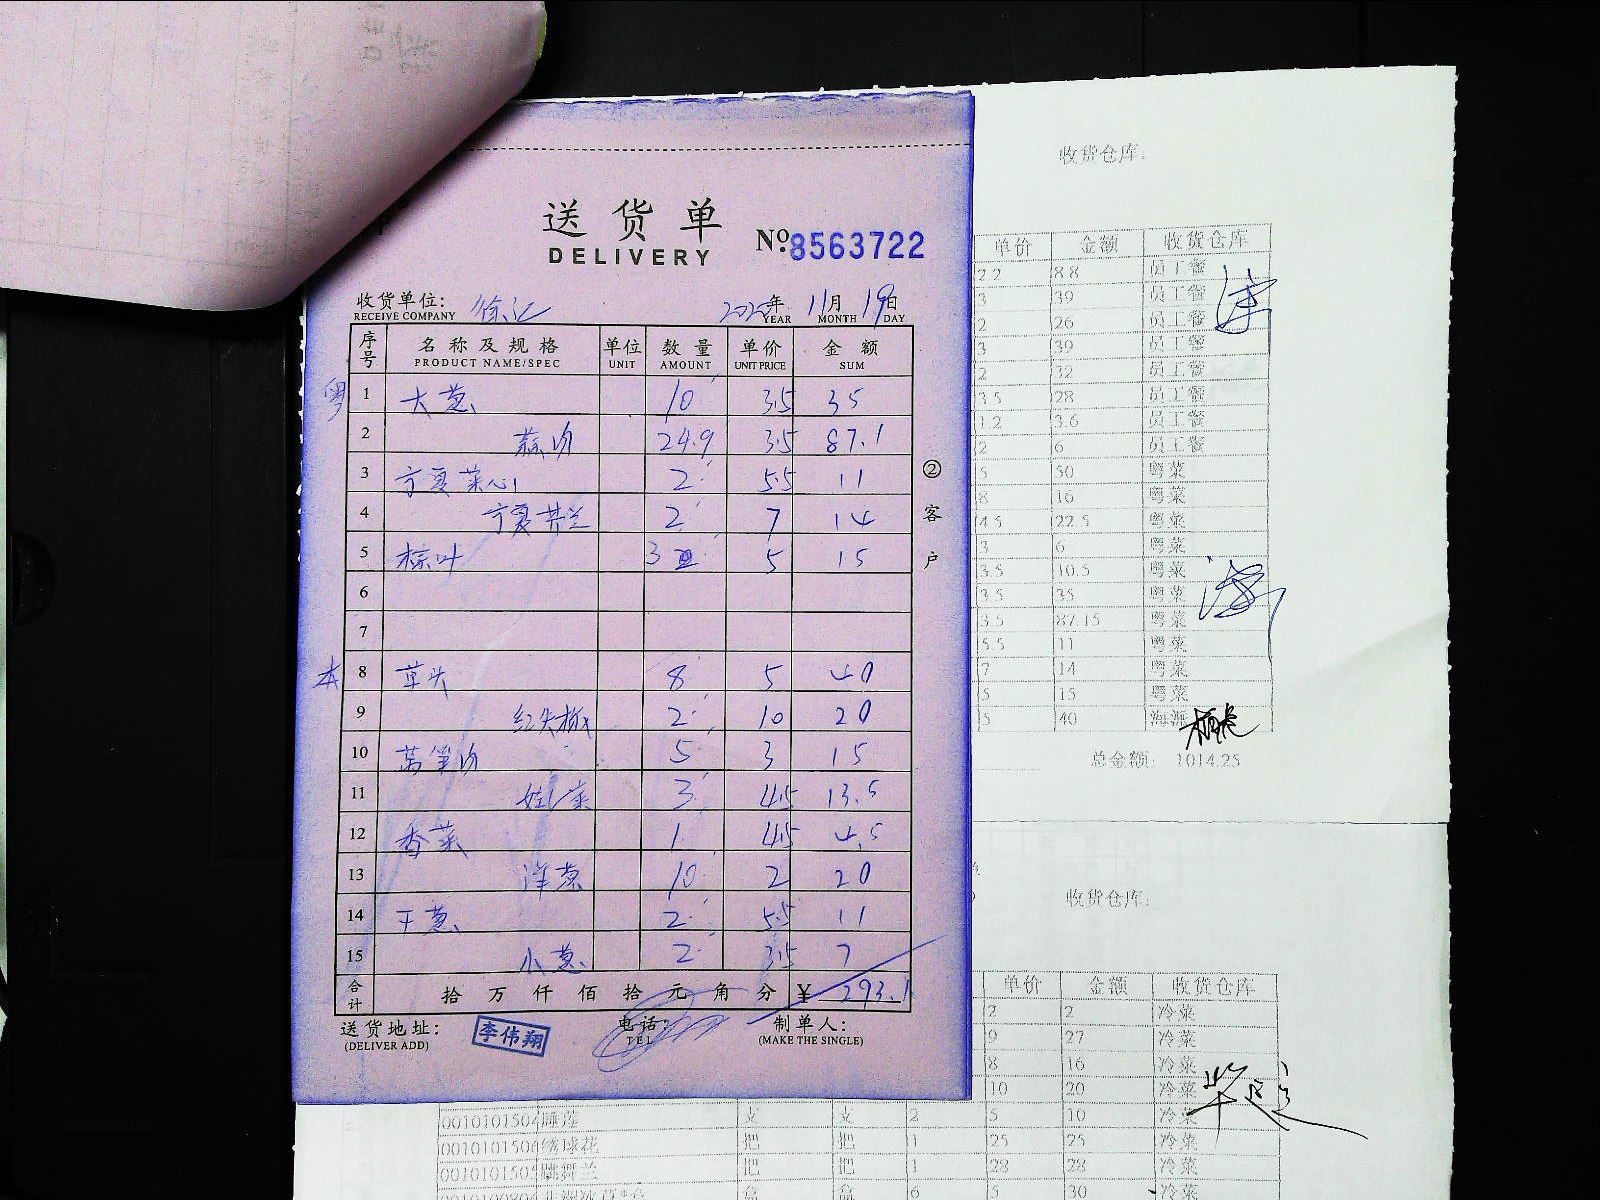 送货单
DELIVERY
No 8563722
收货单位: 徐汇 2020年 11月 19日
RECEIVE COMPANY YEAR MONTH DAY
序号 名称及规格 单位 数量 单价 金额
PRODUCT NAME/SPEC UNIT AMOUNT UNIT PRICE SUM
粤 1 大葱 10 3.5 35
2 蒜肉 24.9 3.5 87.1
3 宁夏菜心 2 5.5 11
4 宁夏芥兰 2 7 14
5 棕叶 3 5 15
6
7
本 8 草头 8 5 40
9 红尖椒 2 10 20
10 莴笋肉 5 3 15
11 娃娃菜 3 4.5 13.5
12 香菜 1 4.5 4.5
13 洋葱 10 2 20
14 干葱 2 5.5 11
15 小葱 2 3.5 7
合计 拾万仟佰拾元角分 ¥ 293.1
②客户
送货地址: 李伟翔 电话: 制单人:
(DELIVER ADD) TEL (MAKE THE SINGLE)
收货仓库:
单价 金额 收货仓库
2.2 8.8 员工餐
3 39 员工餐
2 26 员工餐
3 39 员工餐
2 32 员工餐
3.5 28 员工餐
1.2 3.6 员工餐
2 6 员工餐
5 50 粤菜
8 16 粤菜
4.5 22.5 粤菜
3 6 粤菜
3.5 10.5 粤菜
3.5 35 粤菜
3.5 87.15 粤菜
5.5 11 粤菜
7 14 粤菜
5 15 粤菜
5 40 海派
总金额: 1014.25
收货仓库:
单价 金额 收货仓库
2 2 冷菜
9 27 冷菜
8 16 冷菜
10 20 冷菜
睡莲 支 支 2 5 10 冷菜
绣球花 把 把 1 25 25 冷菜
跳舞兰 把 把 1 28 28 冷菜
盒 盒 6 5 30 冷菜